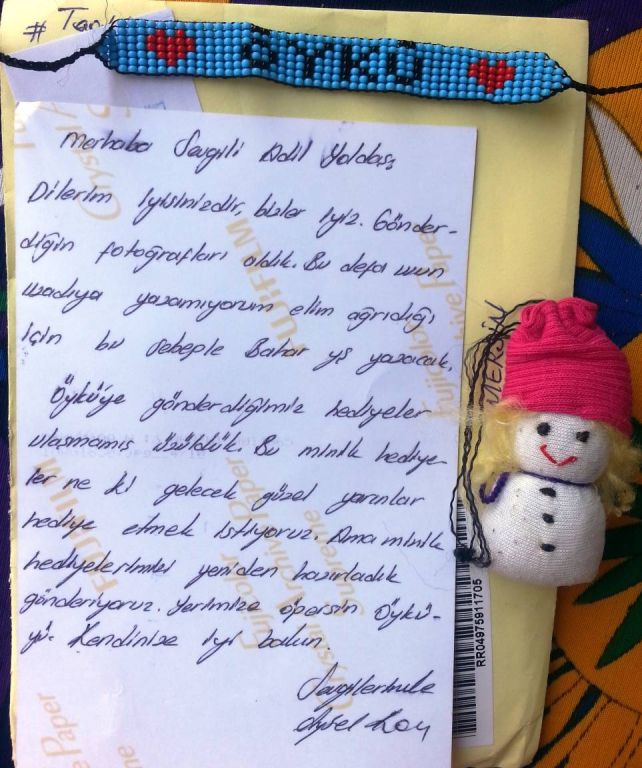 # Tar
ÖYKÜ
Merhaba Sevgili Adil Yoldaş,
Dilerim iyisinizdir, bizler iyiz. Gönder-
diğin fotoğrafları aldık. Bu defa uzun
uzadıya yazamıyorum elim ağrıdığı
için bu sebeple Bahar yş yazacak.
Öykü'ye gönderdiğimiz hediyeler
ulaşmamış üzüldük. Bu minik hediye-
ler ne ki gelecek güzel yarınlar
hediye etmek istiyoruz. Ama minik
hediyelerimizi yeniden hazırladık
gönderiyoruz. Yerimize öpersin Öykü-
yü. Kendinize iyi bakın.
Sevgilerimle
Aysel Koç
MERSİN
RR04975911705
FUJIFILM
Fujicolor
Crystal Archive Paper
Supreme